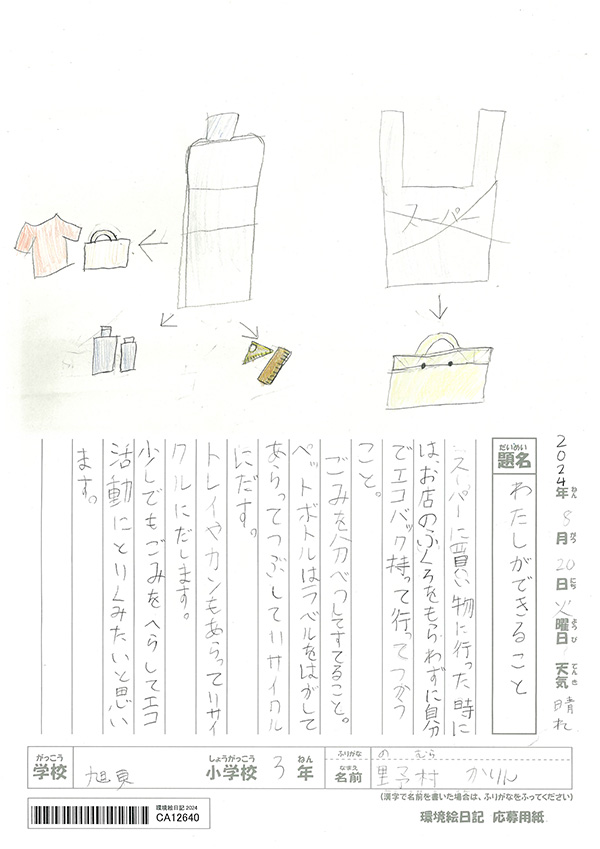 スーパー
2024年ねん 8月がつ 20日にち 火曜日ようび 天気てんき 晴れ
題名だいめい わたしができること
スーパーに買い物に行った時に
は、お店のふくろをもらわずに自分
でエコバック持って行ってつかう
こと。
ごみを分べつしてすてること。
ペットボトルはラベルをはがして
あらってつぶしてリサイクル
にだす。
トレイやカンもあらってリサイ
クルにだします。
少しでもごみをへらしてエコ
活動にとりくみたいと思い
ます。
がっこう 学校 旭東 しょうがっこう 小学校 3 ねん 年
ふりがな の むら
なまえ 名前 野村 かりん
(漢字で名前を書いた場合は、ふりがなをふってください)
環境絵日記 2024
CA12640
環境絵日記 応募用紙